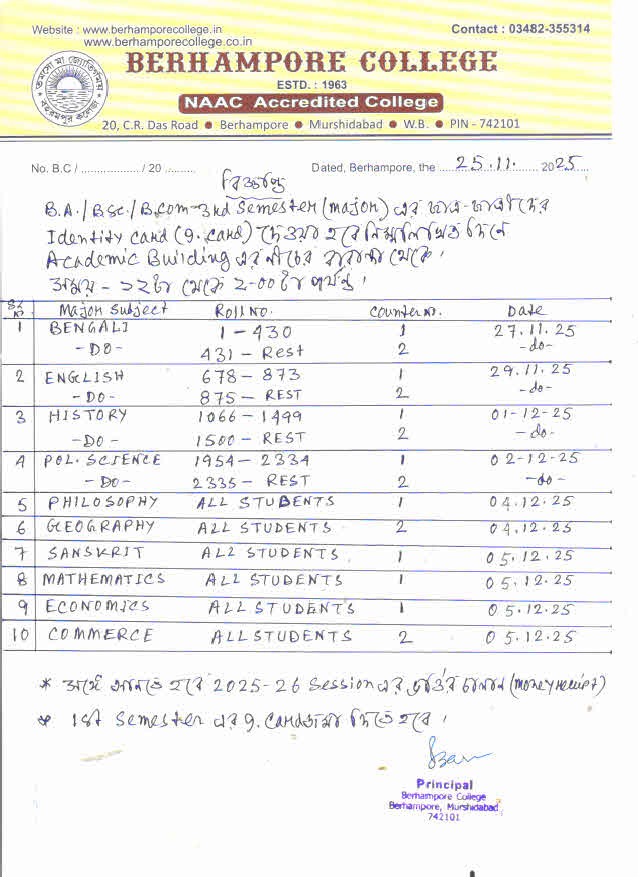 Website : www.berhamporecollege.in
www.berhamporecollege.co.in
Contact : 03482-355314
তমসো মা জ্যোতির্গময়
বহরমপুর কলেজ
BERHAMPORE COLLEGE
ESTD. : 1963
NAAC Accredited College
20, C.R. Das Road ● Berhampore ● Murshidabad ● W.B. ● PIN - 742101
No. B.C / .................... / 20 ..........
Dated, Berhampore, the ....25.11. 2025....
বিজ্ঞপ্তি
B.A./BSc./B.Com-3rd Semester (major) এর ছাত্র-ছাত্রীদের
Identity card (g. card) দেওয়া হবে নিম্নলিখিত দিনে
Academic Building এর নীচের বারান্দা থেকে।
সময় - ১২টা থেকে ২-০০টা পর্যন্ত।
SL No Major Subject Roll No. Counter No. Date
1 BENGALI 1 - 430 1 27.11.25
- DO - 431 - Rest 2 - do -
2 ENGLISH 678 - 873 1 29.11.25
- DO - 875 - REST 2 - do -
3 HISTORY 1066 - 1499 1 01-12-25
- DO - 1500 - REST 2 - do -
4 POL. SCIENCE 1954 - 2334 1 02-12-25
- DO - 2335 - REST 2 - do -
5 PHILOSOPHY ALL STUDENTS 1 04.12.25
6 GEOGRAPHY ALL STUDENTS 2 04.12.25
7 SANSKRIT ALL STUDENTS 1 05.12.25
8 MATHEMATICS ALL STUDENTS 1 05.12.25
9 ECONOMICS ALL STUDENTS 1 05.12.25
10 COMMERCE ALL STUDENTS 2 05.12.25
* সঙ্গে আনতে হবে 2025-26 Session এর ভর্তির চালান (Money receipt)
* 1st Semester এর g. card জমা দিতে হবে।
Principal
Berhampore College
Berhampore, Murshidabad
742101